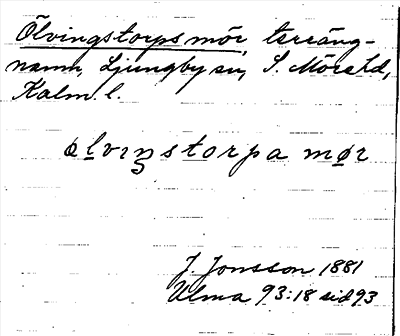 Ölvingstorps mör, terräng-
namn, Ljungby sn, S. Möre hd,
Kalm. l.
ølviŋstorpa mør
J. Jonsson 1881
Ulma 93:18 sid 93